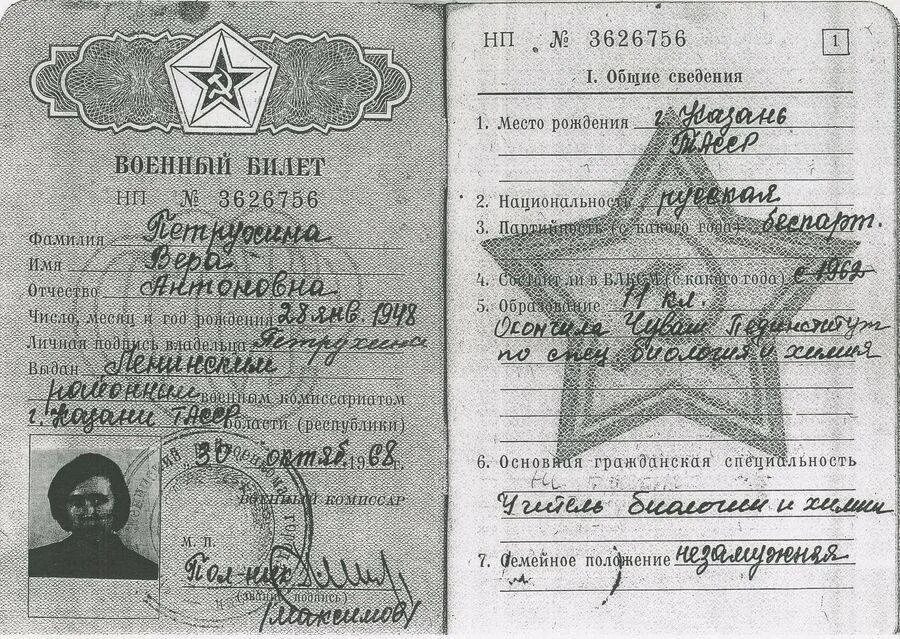 ВОЕННЫЙ БИЛЕТ
НП № 3626756
Фамилия Петрухина
Имя Вера
Отчество Антоновна
Число, месяц и год рождения 28 янв. 1948
Личная подпись владельца Петрухина
Выдан Ленинским
районным военным комиссариатом
г. Казани ТАССР области (республики)
"30" октяб. 1968 г.
ВОЕННЫЙ КОМИССАР
М. П.
Полк-ник
(звание, подпись)
(Максимов)
НП № 3626756
1
I. Общие сведения
1. Место рождения г. Казань
ТАССР
2. Национальность русская
3. Партийность (с какого года) беспарт.
4. Состоит ли в ВЛКСМ (с какого года) с 1962
5. Образование 11 кл.
Окончила Чуваш Пединститут
по спец. биология и химия
6. Основная гражданская специальность
Учитель биологии и химии
7. Семейное положение незамужная